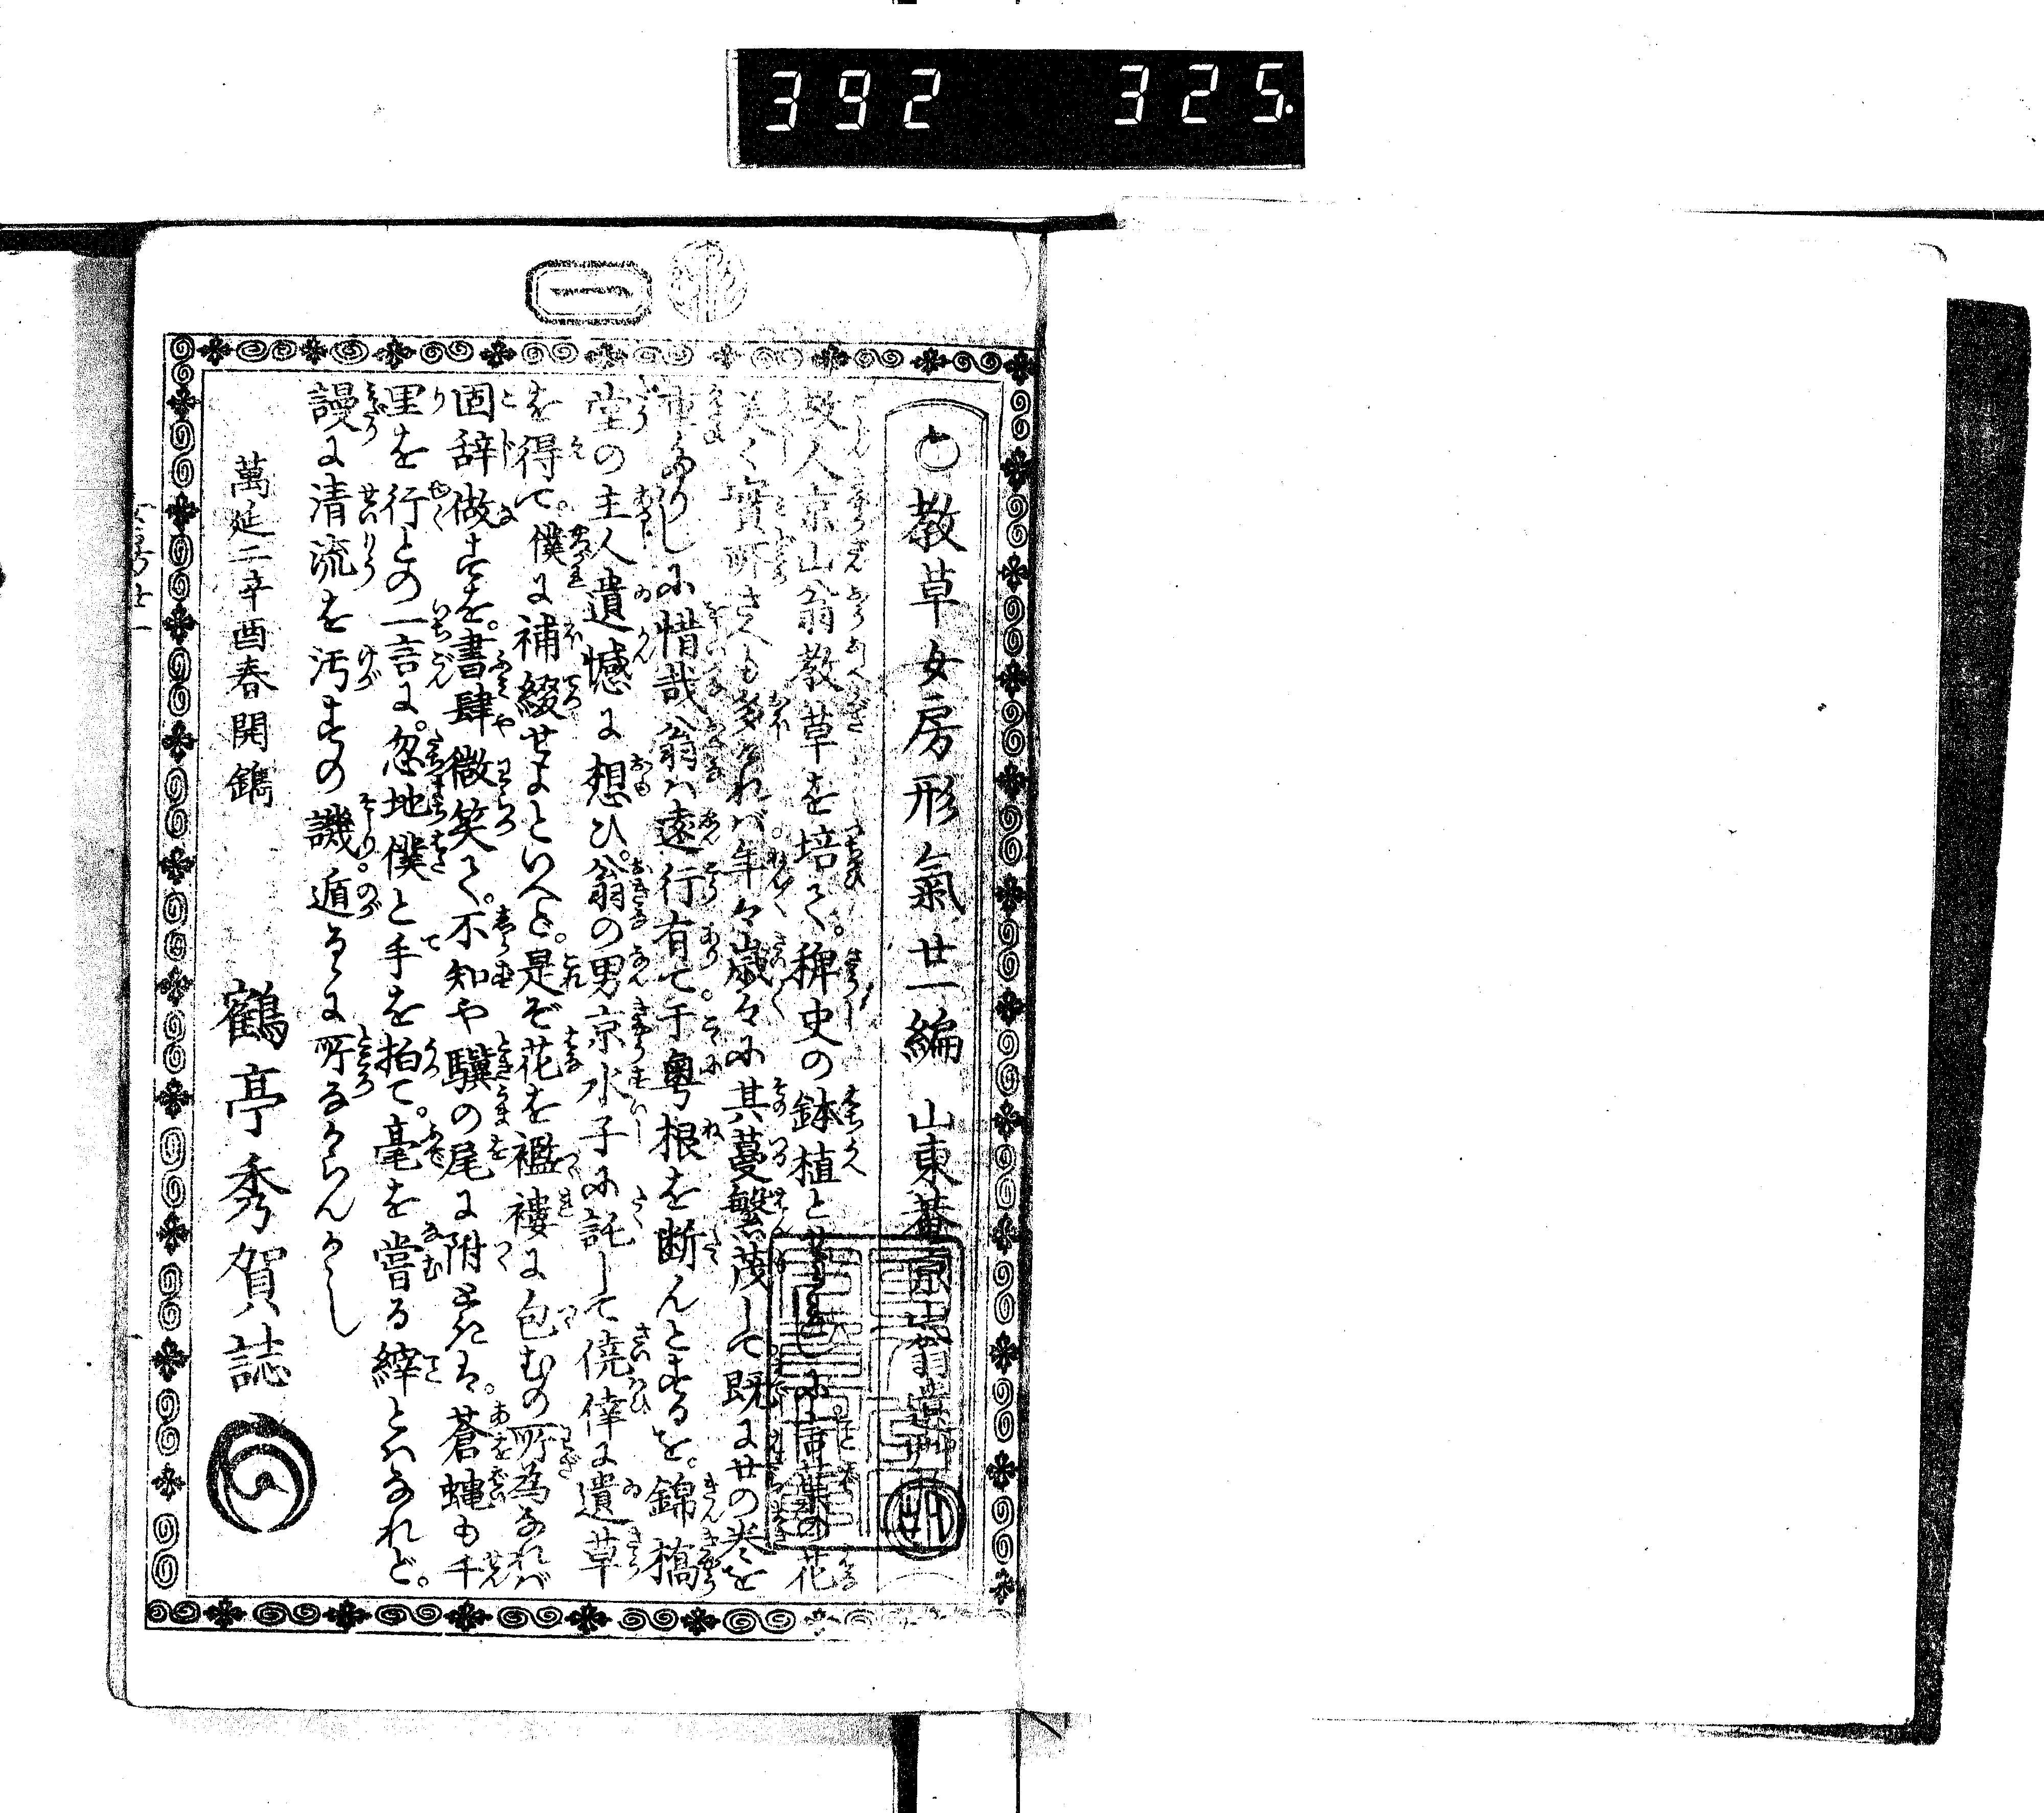 392 325.
一
教草女房形氣廿一編 山東菴京山翁遺稿
故人京山翁教草を培て。稗史の鉢植とせられしに。言葉の花
美く實所さへも多かれバ。年々歳々に其蔓繁茂して既に廿の巻を
重ありしに惜哉翁ハ遠行有て于粤根を断んとするを。錦橋
堂の主人遺憾に想ひ。翁の男京水子に託して僥倖に遺草
を得て。僕に補綴せよといへど。是ぞ花を襤褸に包むの所為なれバ
固辞做すを。書肆微笑て。不知や驥の尾に附ときハ。蒼蠅も千
里を行との一言に。忽地僕と手を拍て。毫を嘗る縡とハなれど。
謾に清流を汚すの譏。遁るゝに所なからんかし
萬延二辛酉春開鐫
鶴亭秀賀誌